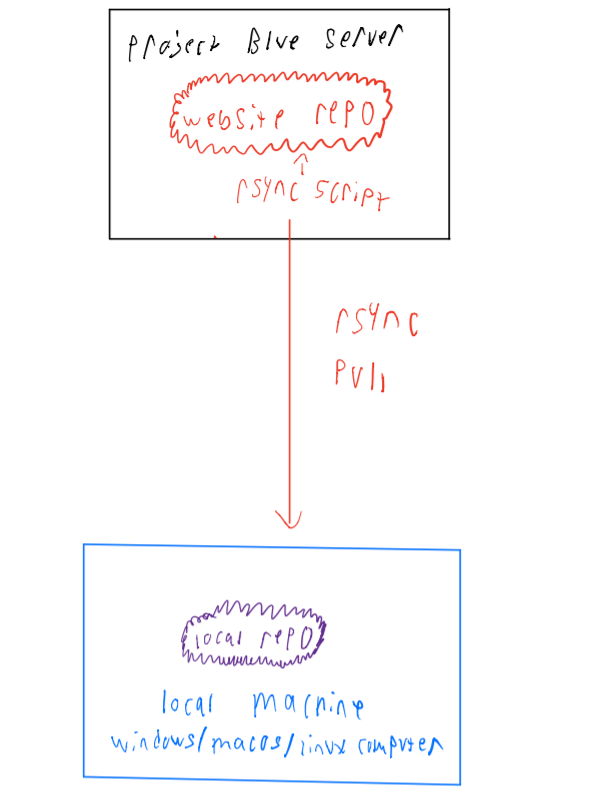 Project Blue Server
website repo
rsync script
rsync
pull
local repo
local machine
windows/macos/linux computer